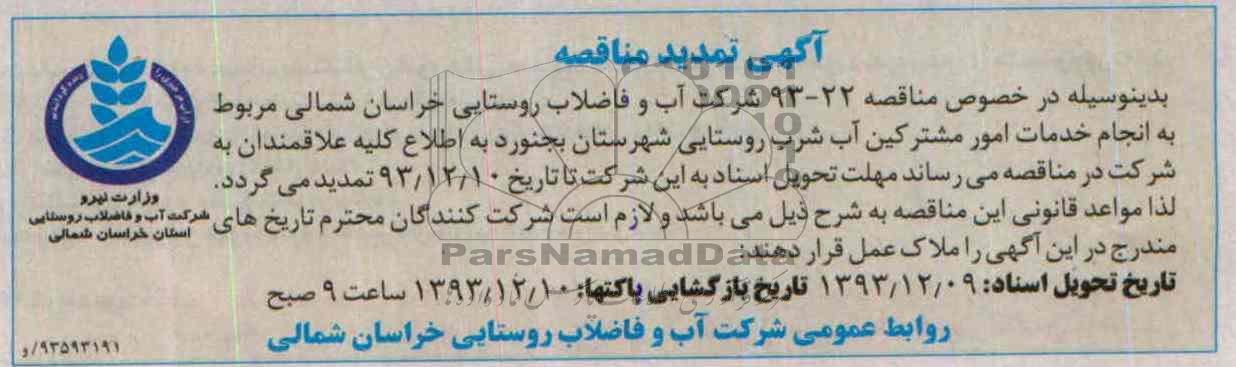 آگهی تمدید مناقصه
بدینوسیله در خصوص مناقصه ۲۲-۹۳ شرکت آب و فاضلاب روستایی خراسان شمالی مربوط
به انجام خدمات امور مشترکین آب شرب روستایی شهرستان بجنورد به اطلاع کلیه علاقمندان به
شرکت در مناقصه می رساند مهلت تحویل اسناد به این شرکت تا تاریخ ۹۳/۱۲/۱۰ تمدید می گردد.
لذا مواعد قانونی این مناقصه به شرح ذیل می باشد و لازم است شرکت کنندگان محترم تاریخ های
مندرج در این آگهی را ملاک عمل قرار دهند:
تاریخ تحویل اسناد: ۱۳۹۳/۱۲/۰۹ تاریخ بازگشایی پاکتها: ۱۳۹۳/۱۲/۱۰ ساعت ۹ صبح
روابط عمومی شرکت آب و فاضلاب روستایی خراسان شمالی
وزارت نیرو
شرکت آب و فاضلاب روستایی
استان خراسان شمالی
۹۳۵۹۳۱۹۱/و
ParsNamadData